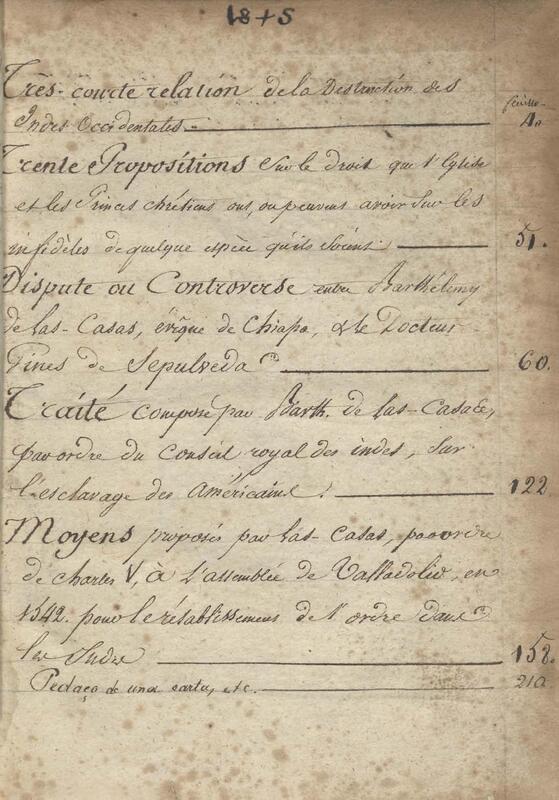 18+5
Très-courte relation de la Destruction des
feuille
Indes Occidentales 4.
Trente Propositions Sur le droit que l'Eglise
et les Princes chrétiens ont, ou peuvent avoir sur les
infidèles de quelque espèce qu'ils soient. 51.
Dispute ou Controverse entre Barthélemy
de Las-Casas, évêque de Chiapa, & le Docteur
Gines de Sepulveda 60.
Traité composé par Barth. de Las-Casas,
par ordre du Conseil royal des indes, sur
l'esclavage des Américains. 122.
Moyens proposés par Las-Casas, par ordre
de Charles V, à L'assemblée de Valladolid, en
1542. pour le rétablissement de l'ordre dans
les Indes 158.
Pedaço de una carta, etc. 210